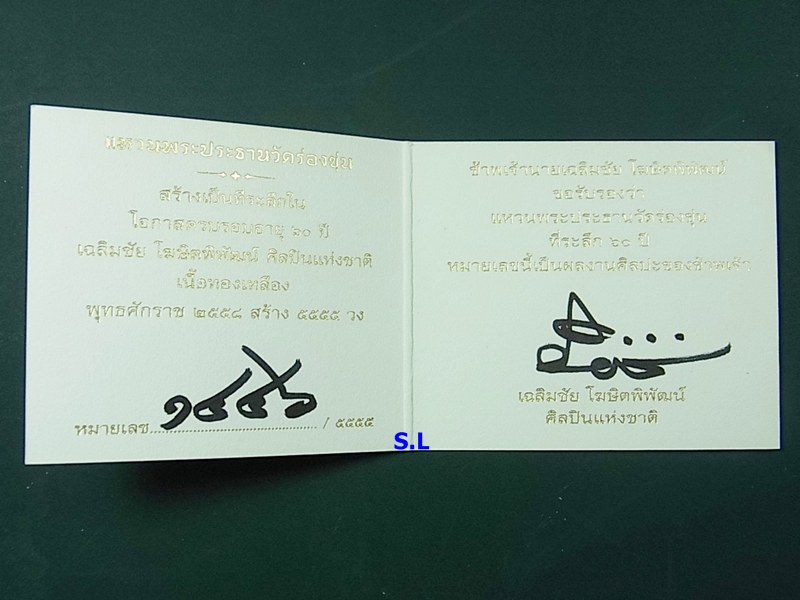 แหวนพระประธานวัดร่องขุ่น
สร้างเป็นที่ระลึกใน
โอกาสครบรอบอายุ ๖๐ ปี
เฉลิมชัย โฆษิตพิพัฒน์ ศิลปินแห่งชาติ
เนื้อทองเหลือง
พุทธศักราช ๒๕๕๘ สร้าง ๕๕๕๕ วง
หมายเลข................................ / ๕๕๕๕
ข้าพเจ้านายเฉลิมชัย โฆษิตพิพัฒน์
ขอรับรองว่า
แหวนพระประธานวัดร่องขุ่น
ที่ระลึก ๖๐ ปี
หมายเลขนี้เป็นผลงานศิลปะของข้าพเจ้า
เฉลิมชัย โฆษิตพิพัฒน์
ศิลปินแห่งชาติ
S.L